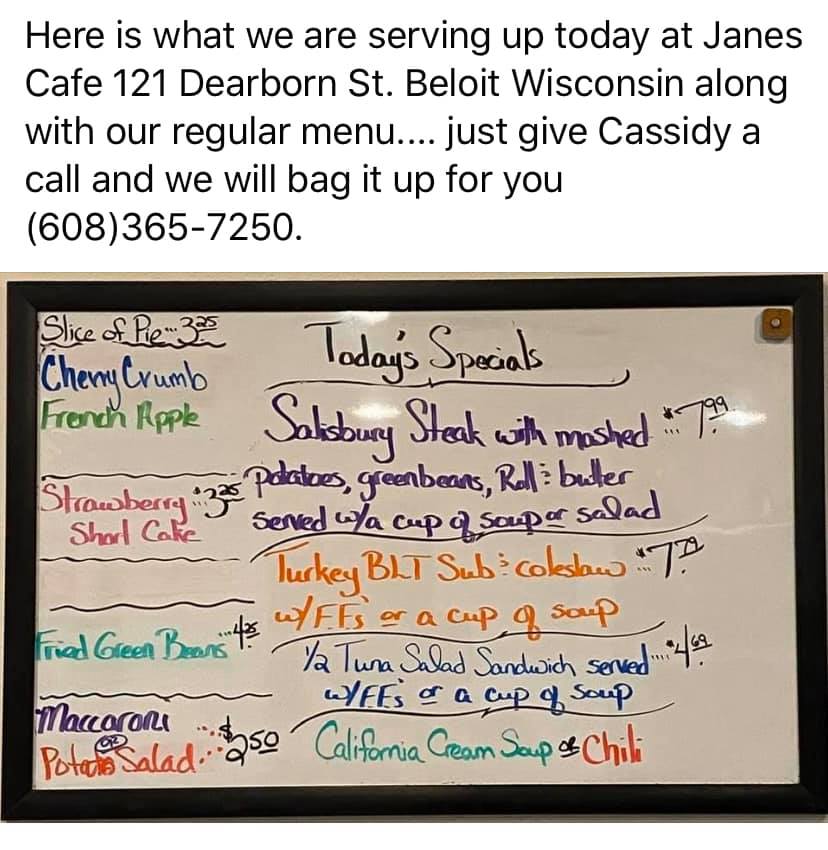 Here is what we are serving up today at Janes
Cafe 121 Dearborn St. Beloit Wisconsin along
with our regular menu.... just give Cassidy a
call and we will bag it up for you
(608)365-7250.
Slice of Pie...3.25
Cherry Crumb
French Apple
Strawberry...$3.25
Short Cake
Fried Green Beans...4.25
Maccaroni
OR
Potato Salad...$2.50
Today's Specials
Salisbury Steak with mashed...$7.99
potatoes, greenbeans, Roll & butter
served w/a cup of soup or salad
Turkey BLT Sub & coleslaw...$7.79
w/FFs or a cup of soup
1/2 Tuna Salad Sandwich served...$4.69
w/FFs or a cup of soup
California Cream Soup or Chili